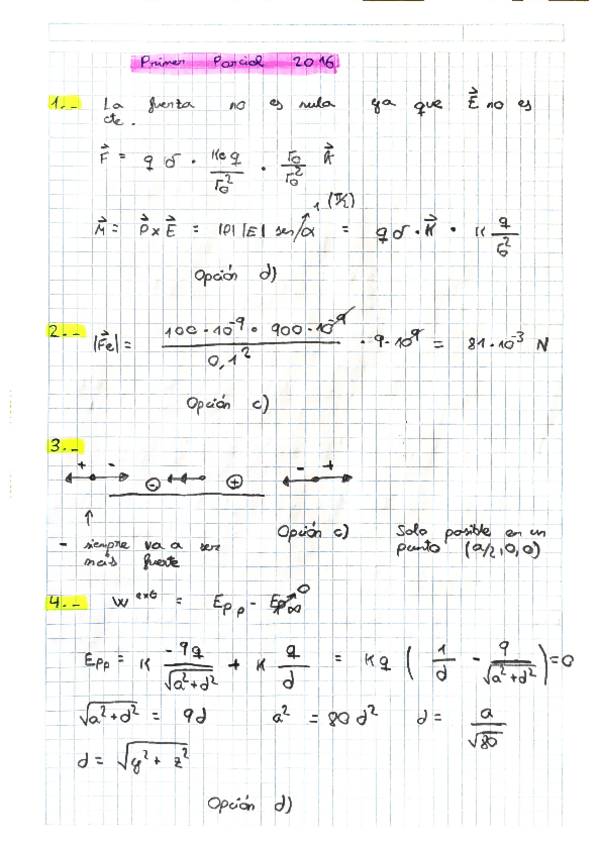 Primer Parcial 2016
1.- La fuerza no es nula ya que E⃗ no es
cte.
F⃗ = q σ · Ke q / r₀² · r₀ / r₀² R⃗
M⃗ = P⃗ x E⃗ = |P| |E| sen α 1 (K⃗) = q σ · K⃗ · K q / σ²
Opción d)
2.- |F⃗e| = 100 · 10⁻⁹ · 900 · 10⁻⁹ / 0,1² · 9 · 10⁹ = 81 · 10⁻³ N
Opción c)
3.-
+ - - + - +
- siempre va a ser
más fuerte
Opción c) Solo posible en un
punto (a/2, 0, 0)
4.- W ext = Ep p - Ep ∞ 0
Epp = K -9q / √a²+d² + K q / d = K q ( 1 / d - 9 / √a²+d² ) = 0
√a²+d² = 9d a² = 80 d² d = a / √80
d = √y² + z²
Opción d)